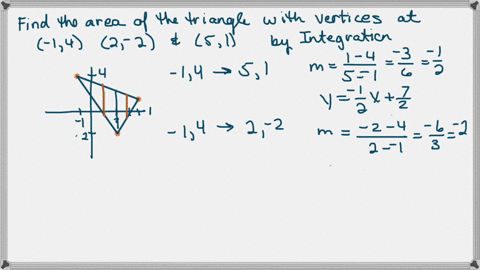 Find the area of the triangle with vertices at
(-1,4) (2,-2) & (5,1) by Integration
-1,4 → 5,1
m = (1-4)/(5--1) = -3/6 = -1/2
y = -1/2 x + 7/2
-1,4 → 2,-2
m = (-2-4)/(2--1) = -6/3 = -2
4
-1
1
-2